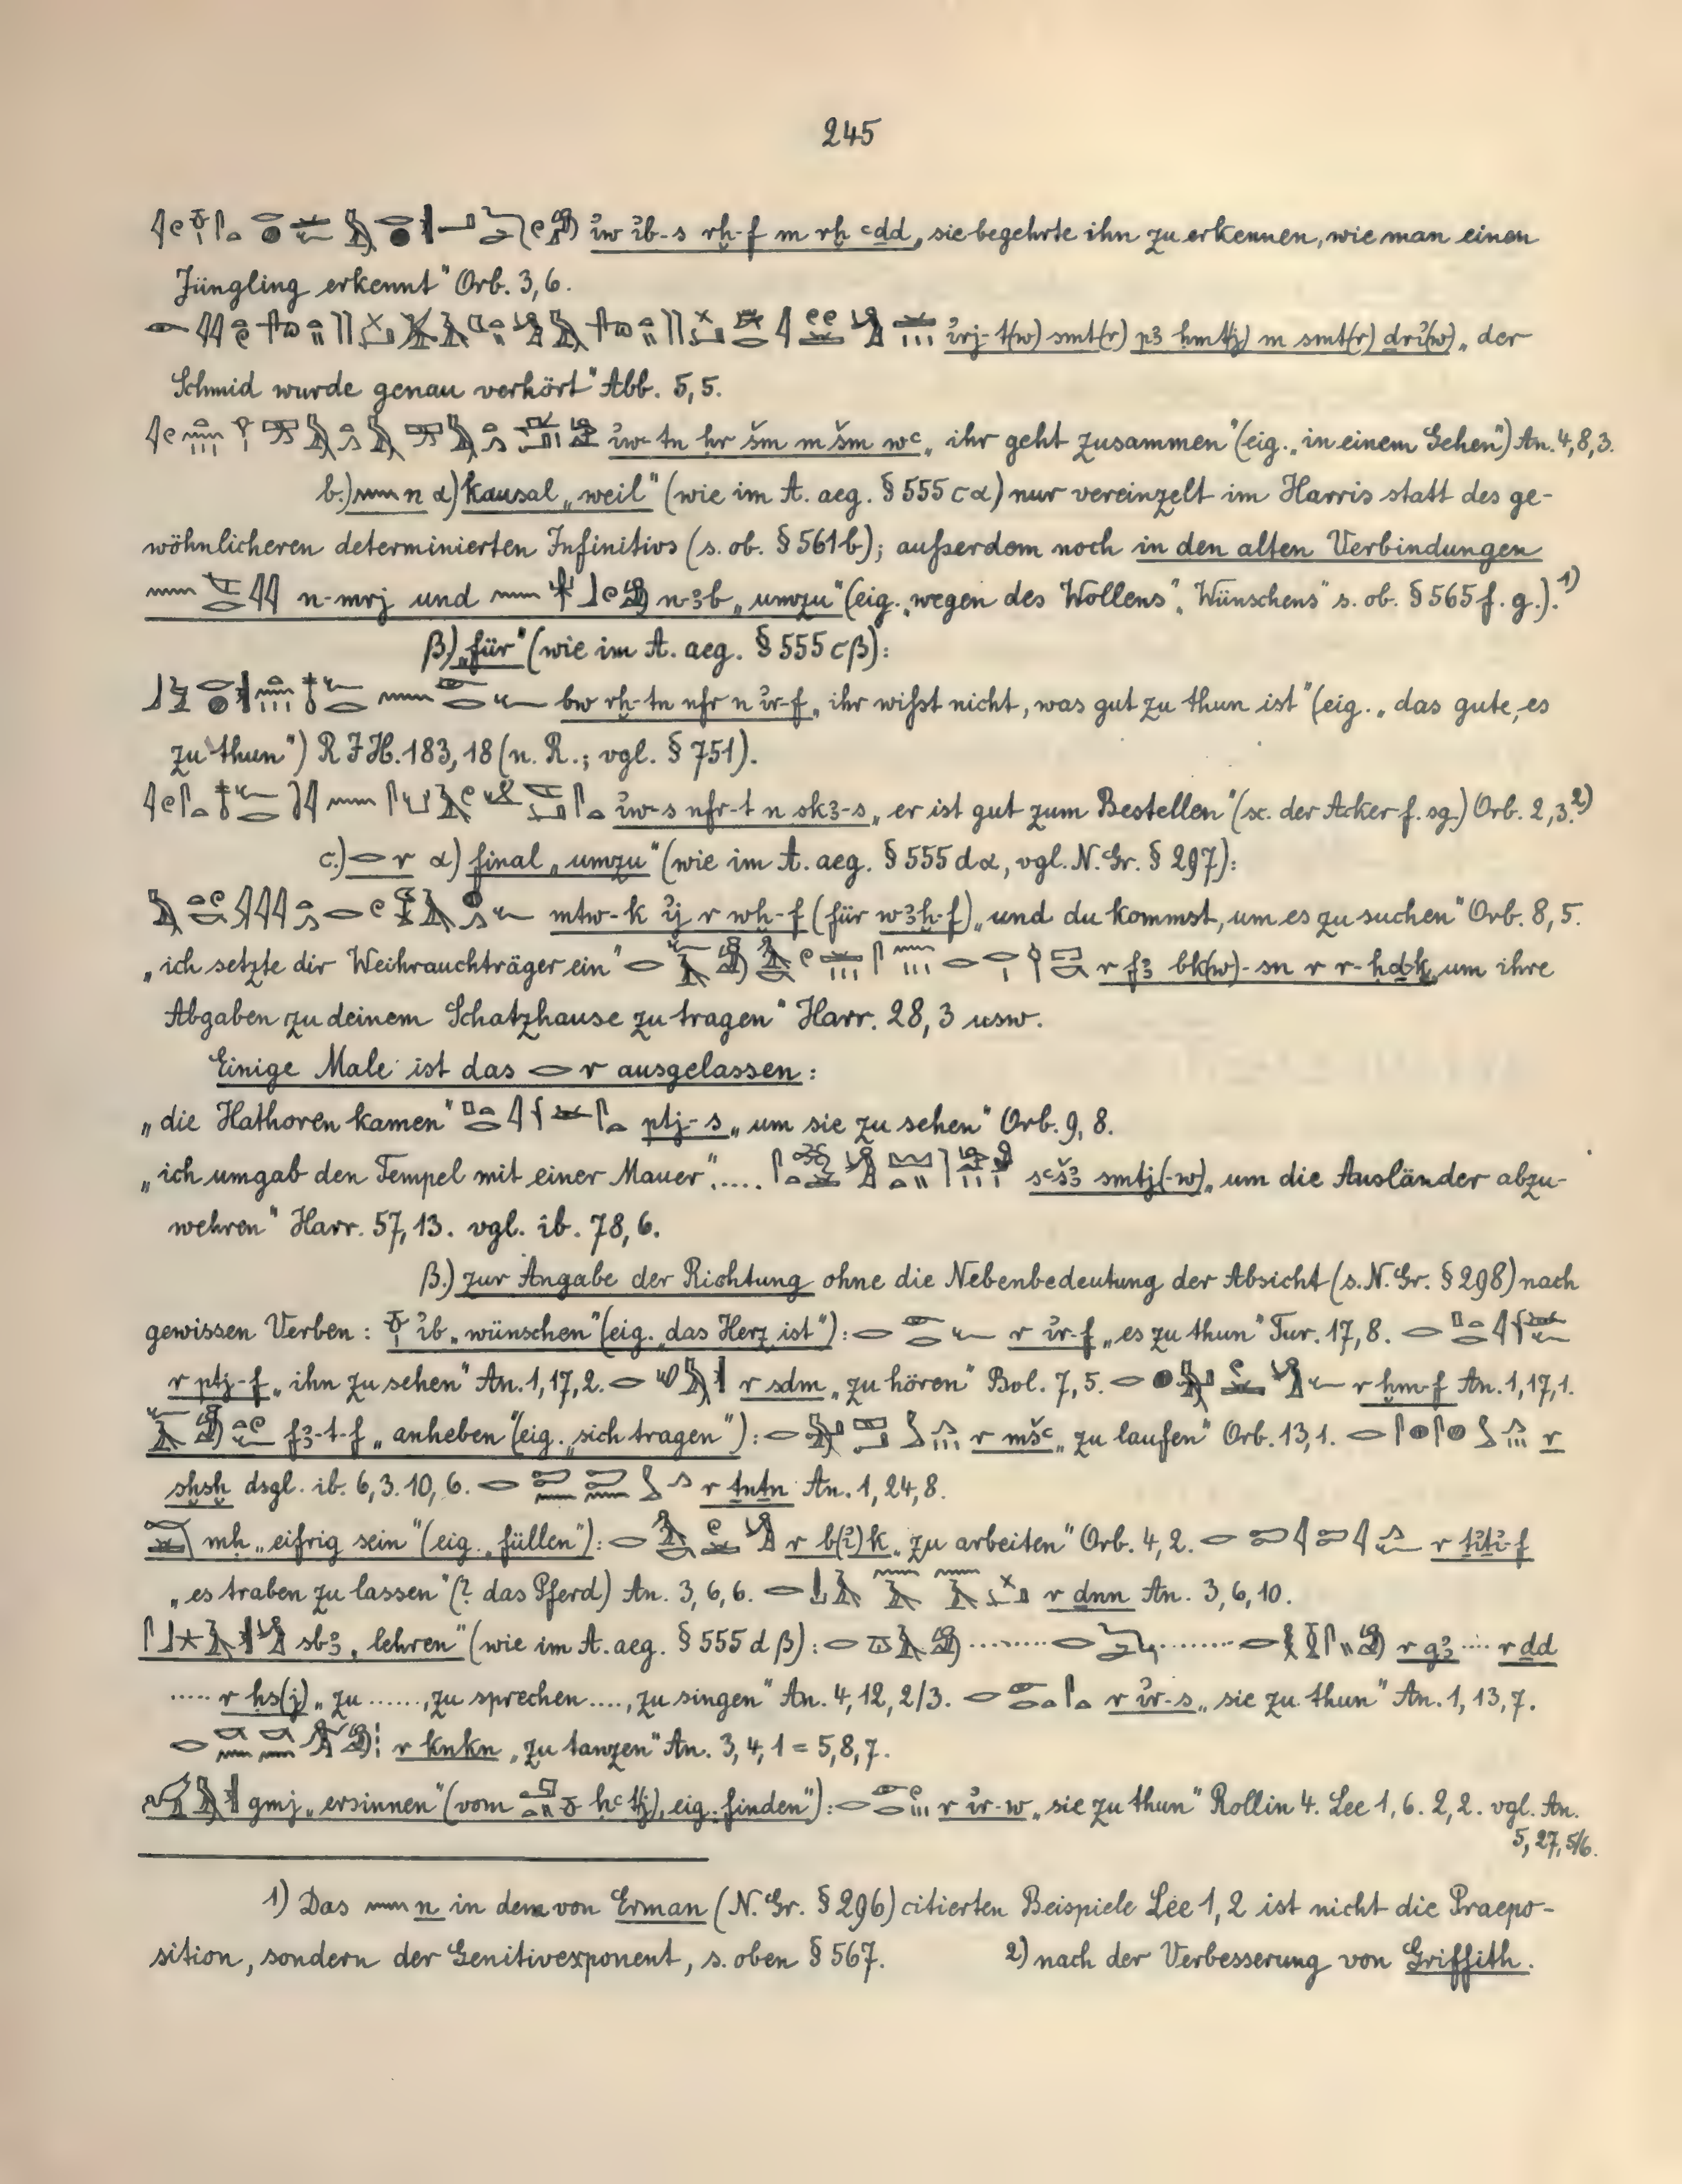 245
ỉw ỉb-s rḫ-f m rḫ ꜥḏd „sie begehrte ihn zu erkennen, wie man einen
Jüngling erkennt“ Orb. 3,6.
ỉrj-t(w) smt(r) pꜣ ḥmt(j) m smt(r) drỉ(w) „der
Schmid wurde genau verhört“ Abb. 5,5.
ỉw-tn ḥr šm m šm wꜥ „ihr geht zusammen“ (eig. „in einem Gehen“) An. 4,8,3.
b.) n α) kausal „weil“ (wie im A. aeg. § 555 c α) nur vereinzelt im Harris statt des ge-
wöhnlicheren determinierten Infinitivs (s. ob. § 561 b); außerdem noch in den alten Verbindungen
n-mrj und n-ꜣb „umzu“ (eig. „wegen des Wollens“, Wünschens“ s. ob. § 565 f. g.).¹)
β) „für“ (wie im A. aeg. § 555 c β):
bw rḫ-tn nfr n ỉr-f „ihr wißt nicht, was gut zu thun ist“ (eig. „das gute, es
zu thun“) R I H. 183,18 (n. R.; vgl. § 751).
ỉw-s nfr-t n skꜣ-s „er ist gut zum Bestellen“ (sc. der Acker f. sg.) Orb. 2,3.²)
c.) r α) final „umzu“ (wie im A. aeg. § 555 d α, vgl. N. Gr. § 297):
mtw-k ỉj r wḫ-f (für wꜣḫ-f) „und du kommst, um es zu suchen“ Orb. 8,5.
„ich setzte dir Weihrauchträger ein“ r fꜣ bk(w)-sn r r-ḥḏ-k „um ihre
Abgaben zu deinem Schatzhause zu tragen“ Harr. 28,3 usw.
Einige Male ist das r ausgelassen:
„die Hathoren kamen“ ptj-s „um sie zu sehen“ Orb. 9,8.
„ich umgab den Tempel mit einer Mauer“..... sꜥšꜣ smtj(-w) „um die Ausländer abzu-
wehren“ Harr. 57,13. vgl. ib. 78,6.
β.) zur Angabe der Richtung ohne die Nebenbedeutung der Absicht (s. N. Gr. § 298) nach
gewissen Verben: ỉb „wünschen“ (eig. „das Herz ist“): r ỉr-f „es zu thun“ Tur. 17,8.
r ptj-f „ihn zu sehen“ An. 1,17,2. r sḏm „zu hören“ Bol. 7,5. r ḫm-f An. 1,17,1.
fꜣ-t-f „anheben“ (eig. „sich tragen“): r mšꜥ „zu laufen“ Orb. 13,1. r
sḫsḫ dsgl. ib. 6,3. 10,6. r ṯnṯn An. 1,24,8.
mḥ „eifrig sein“ (eig. „füllen“): r b(ỉ)k „zu arbeiten“ Orb. 4,2. r ṯỉṯỉ-f
„es traben zu lassen“ (? das Pferd) An. 3,6,6. r dnn An. 3,6,10.
sbꜣ „lehren“ (wie im A. aeg. § 555 d β): r gꜣ .... r ḏd
..... r ḥs(j) „zu ......, zu sprechen ...., zu singen“ An. 4,12,2/3. r ỉr-s „sie zu thun“ An. 1,13,7.
r knkn „zu tanzen“ An. 3,4,1 = 5,8,7.
gmj „ersinnen“ (vom ḥꜥtj), eig. „finden“): r ỉr-w „sie zu thun“ Rollin 4. Lee 1,6. 2,2. vgl. An.
5,27,5/6.
1) Das n in dem von Erman (N. Gr. § 296) citierten Beispiele Lee 1,2 ist nicht die Praepo-
sition, sondern der Genitivexponent, s. oben § 567. 2) nach der Verbesserung von Griffith.